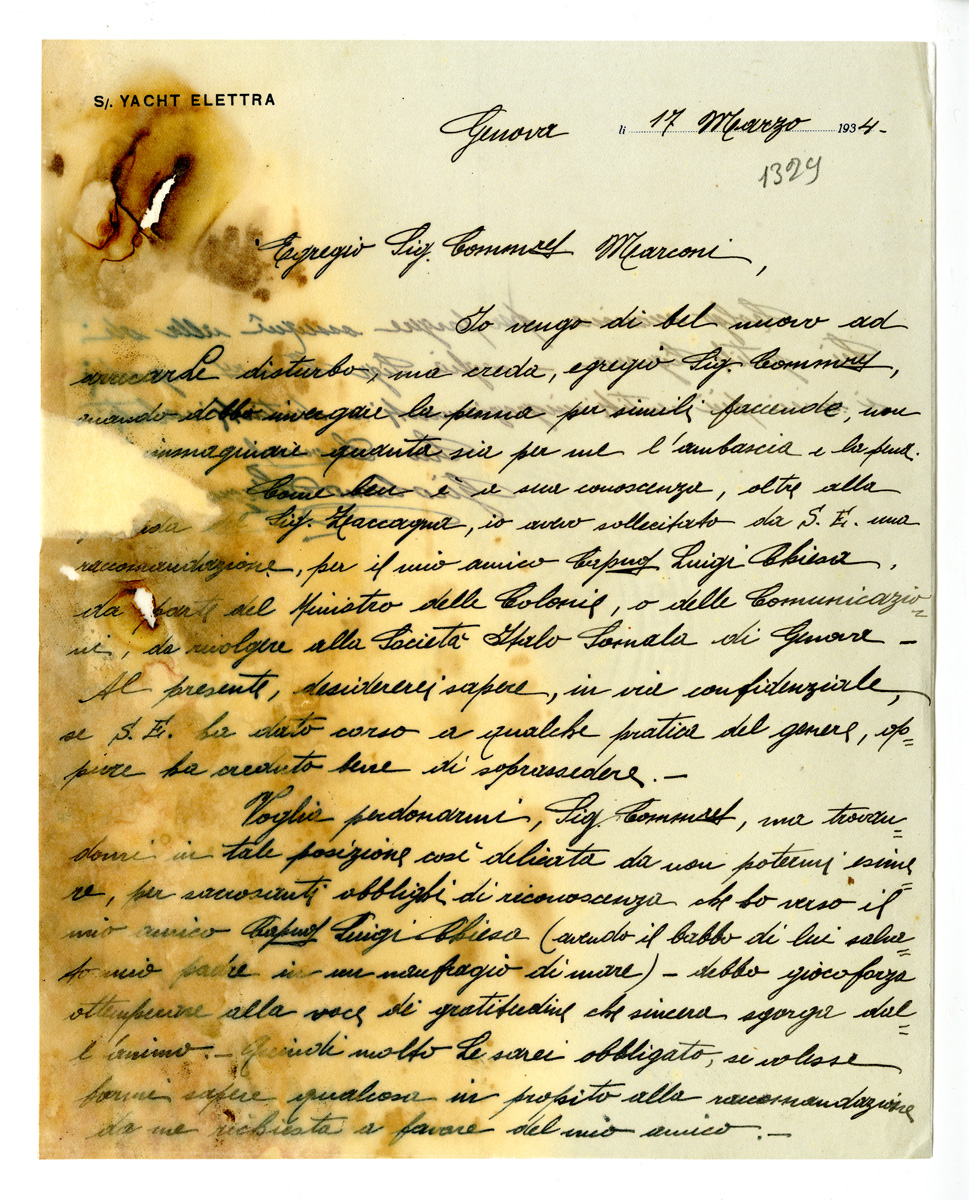 S/. YACHT ELETTRA
Genova li 17 Marzo 1934-
1329
Egregio Sig. Commre Marconi,
Io vengo di bel nuovo ad
arrecarLe disturbo, ma creda, egregio Sig. Commre,
quando debbo invergare la penna per simili faccende, non
immaginare quanta sia per me l'ambascia e la pena.
Come ben è a sua conoscenza, oltre alla
Sig. Zaccagna, io avevo sollecitato da S. E. una
raccomandazione, per il mio amico Luigi Chiesa,
da parte del Ministro delle Colonie, o delle Comunicazio=
ni, da rivolgere alla Società Italo Somala di Genova -
Al presente, desidererei sapere, in via confidenziale,
se S. E. ha dato corso a qualche pratica del genere, op=
pure ha creduto bene di soprassedere. -
Voglia perdonarmi, Sig. Commre, ma trovan=
domi in tale posizione così delicata da non potermi esime=
re, per sacrosanti obblighi di riconoscenza che ho verso il
mio amico Luigi Chiesa (avendo il babbo di lui salva=
to mio padre in un naufragio di mare) - debbo giocoforza
ottemperare alla voce di gratitudine che sincera sgorga dal=
l'animo. - Quindi molto Le sarei obbligato, se volesse
farmi sapere qualcosa in proposito alla raccomandazione
da me richiesta a favore del mio amico. -